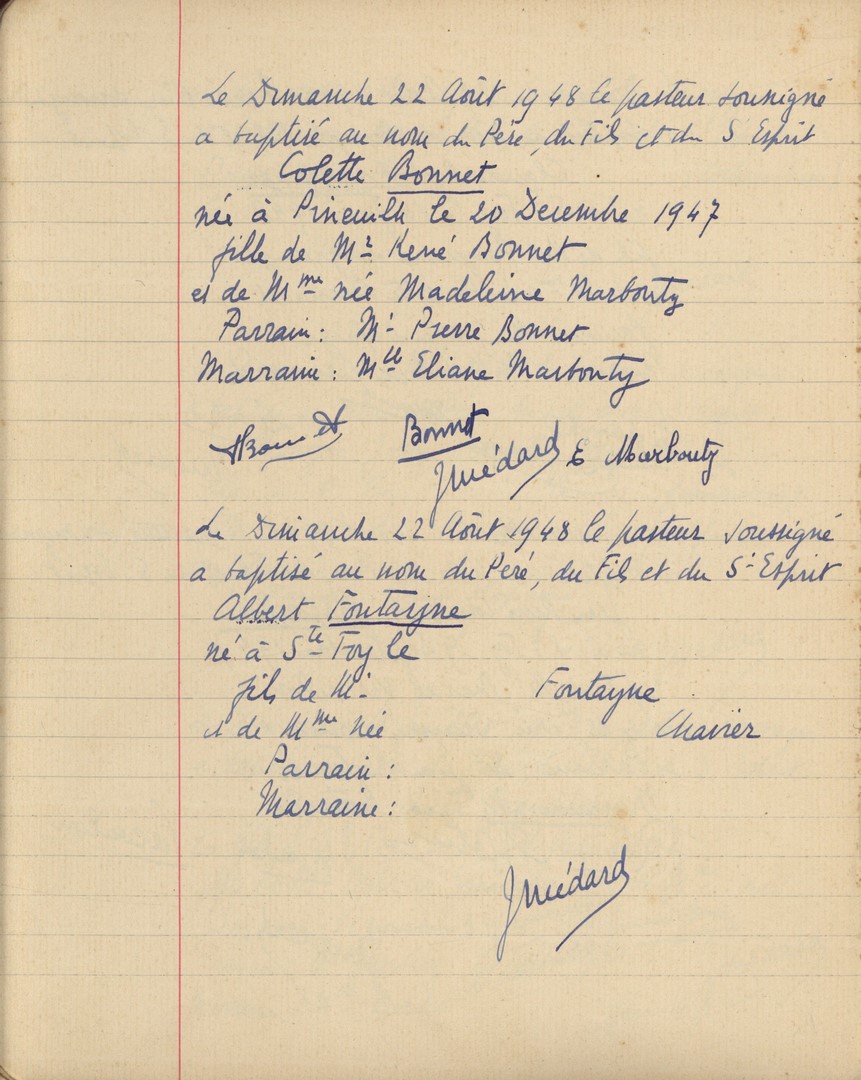 Le Dimanche 22 Août 1948 le pasteur soussigné
a baptisé au nom du Père, du Fils et du S Esprit
Colette Bonnet
née à Pineuilh le 20 Decembre 1947
fille de Mr René Bonnet
et de Mme née Madeleine Marbouty
Parrain : Mr Pierre Bonnet
Marraine : Mlle Eliane Marbouty
Bonnet
E Marbouty
Le Dimanche 22 Août 1948 le pasteur soussigné
a baptisé au nom du Père, du Fils et du St Esprit
Albert Fontayne
né à Ste Foy le
fils de Mr Fontayne
et de Mme née
Parrain :
Marraine :